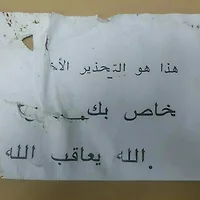 هذا هو التحذير
خاص بك
الله يعاقب الله.